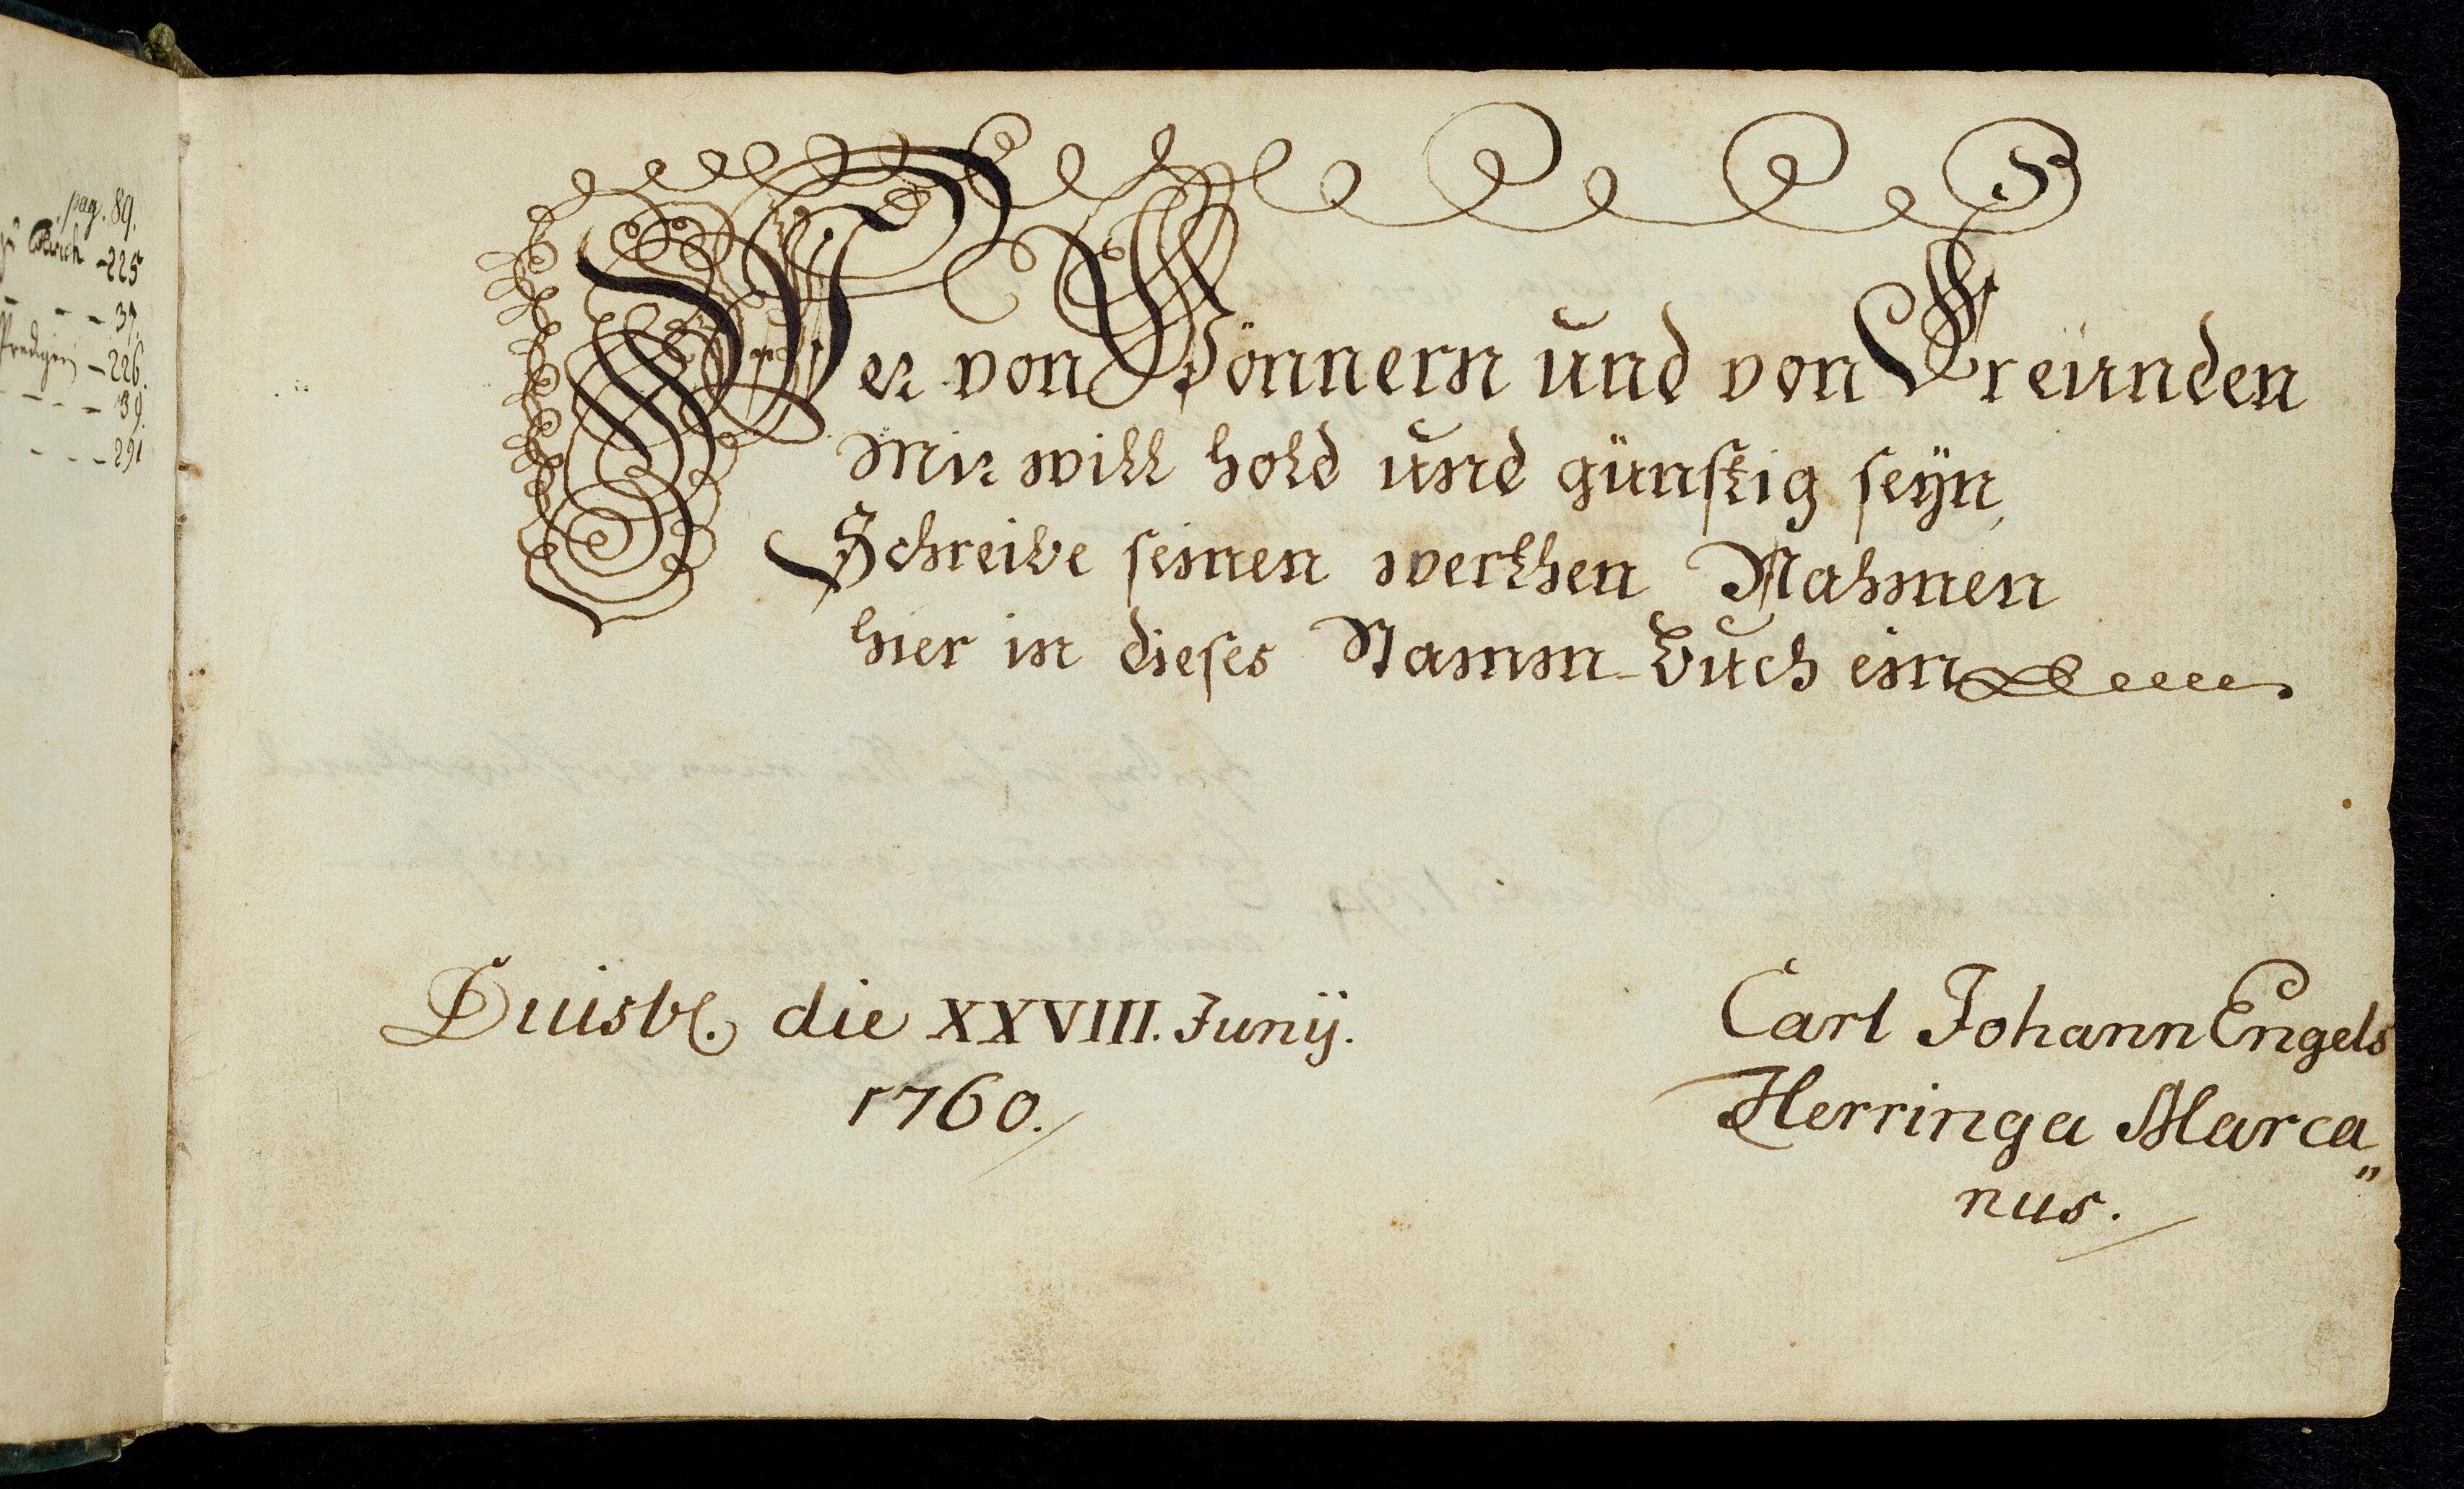 pag. 89.
-225
- - 37.
Predigers -226.
- - - - 39.
- - - 291
Wer von Gönnern und von Freünden
Mir will hold und günstig seÿn,
Schreibe seinen werthen Nahmen
hier in dieses Stamm-Buch ein
Duisb. die XXVIII. Junij.
1760.
Carl Johann Engels
Herringa Marca„
nus.